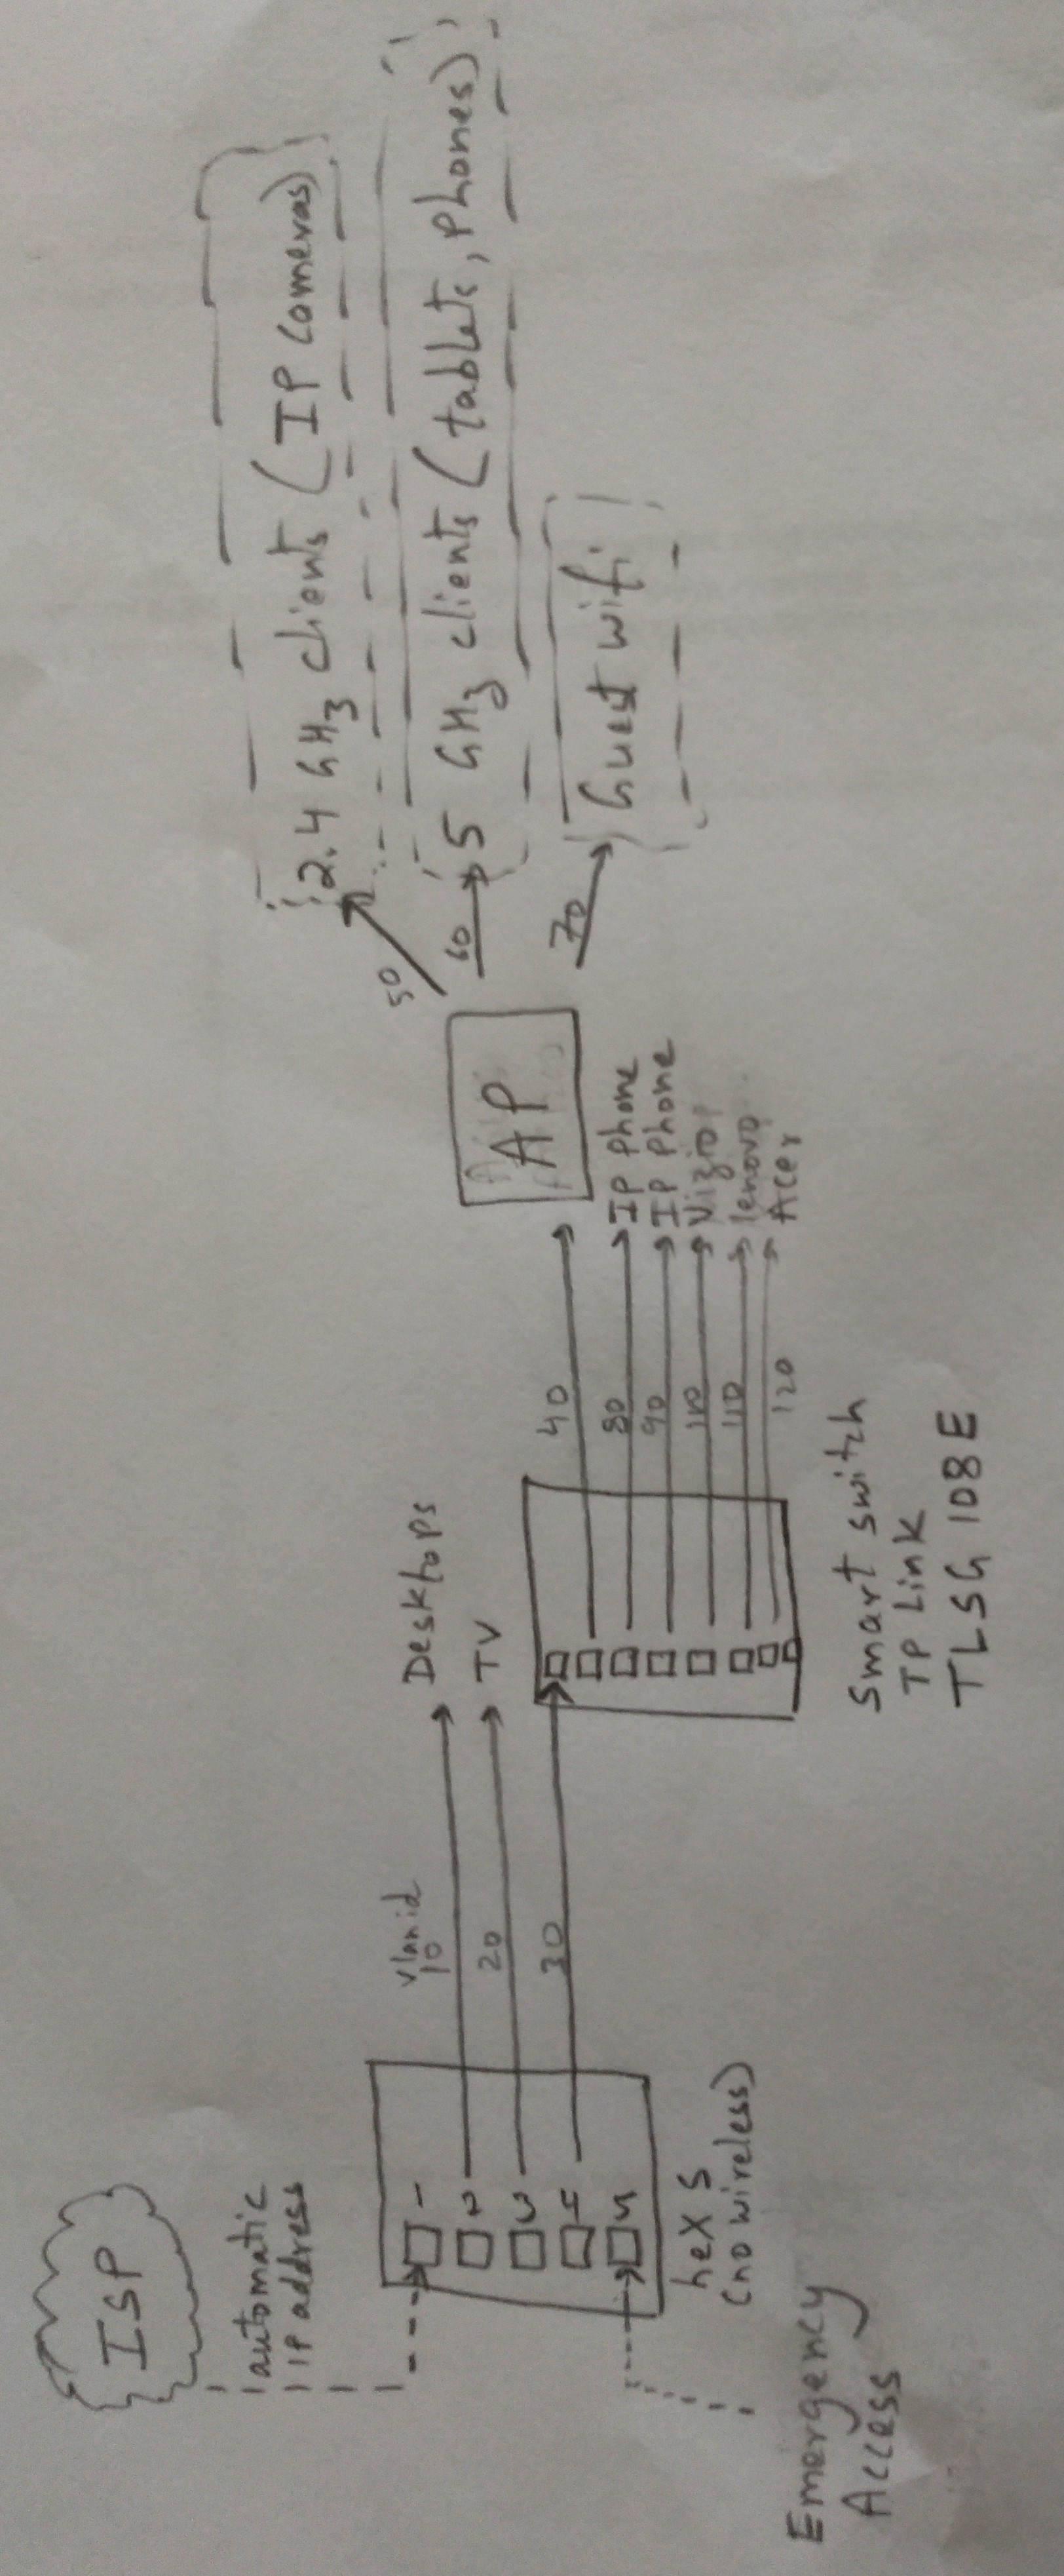 ISP
automatic
IP address
1
2
3
4
5
heX S
(no wireless)
Emergency
Access
vlanid
10
Desktops
20
TV
30
Smart switch
TP Link
TLSG 108E
40
AP
80
IP Phone
90
IP Phone
Vizio
110
lenovo
120
Acer
50
2.4 GHz clients (IP cameras)
60
5 GHz clients (tablets, phones)
70
Guest wifi